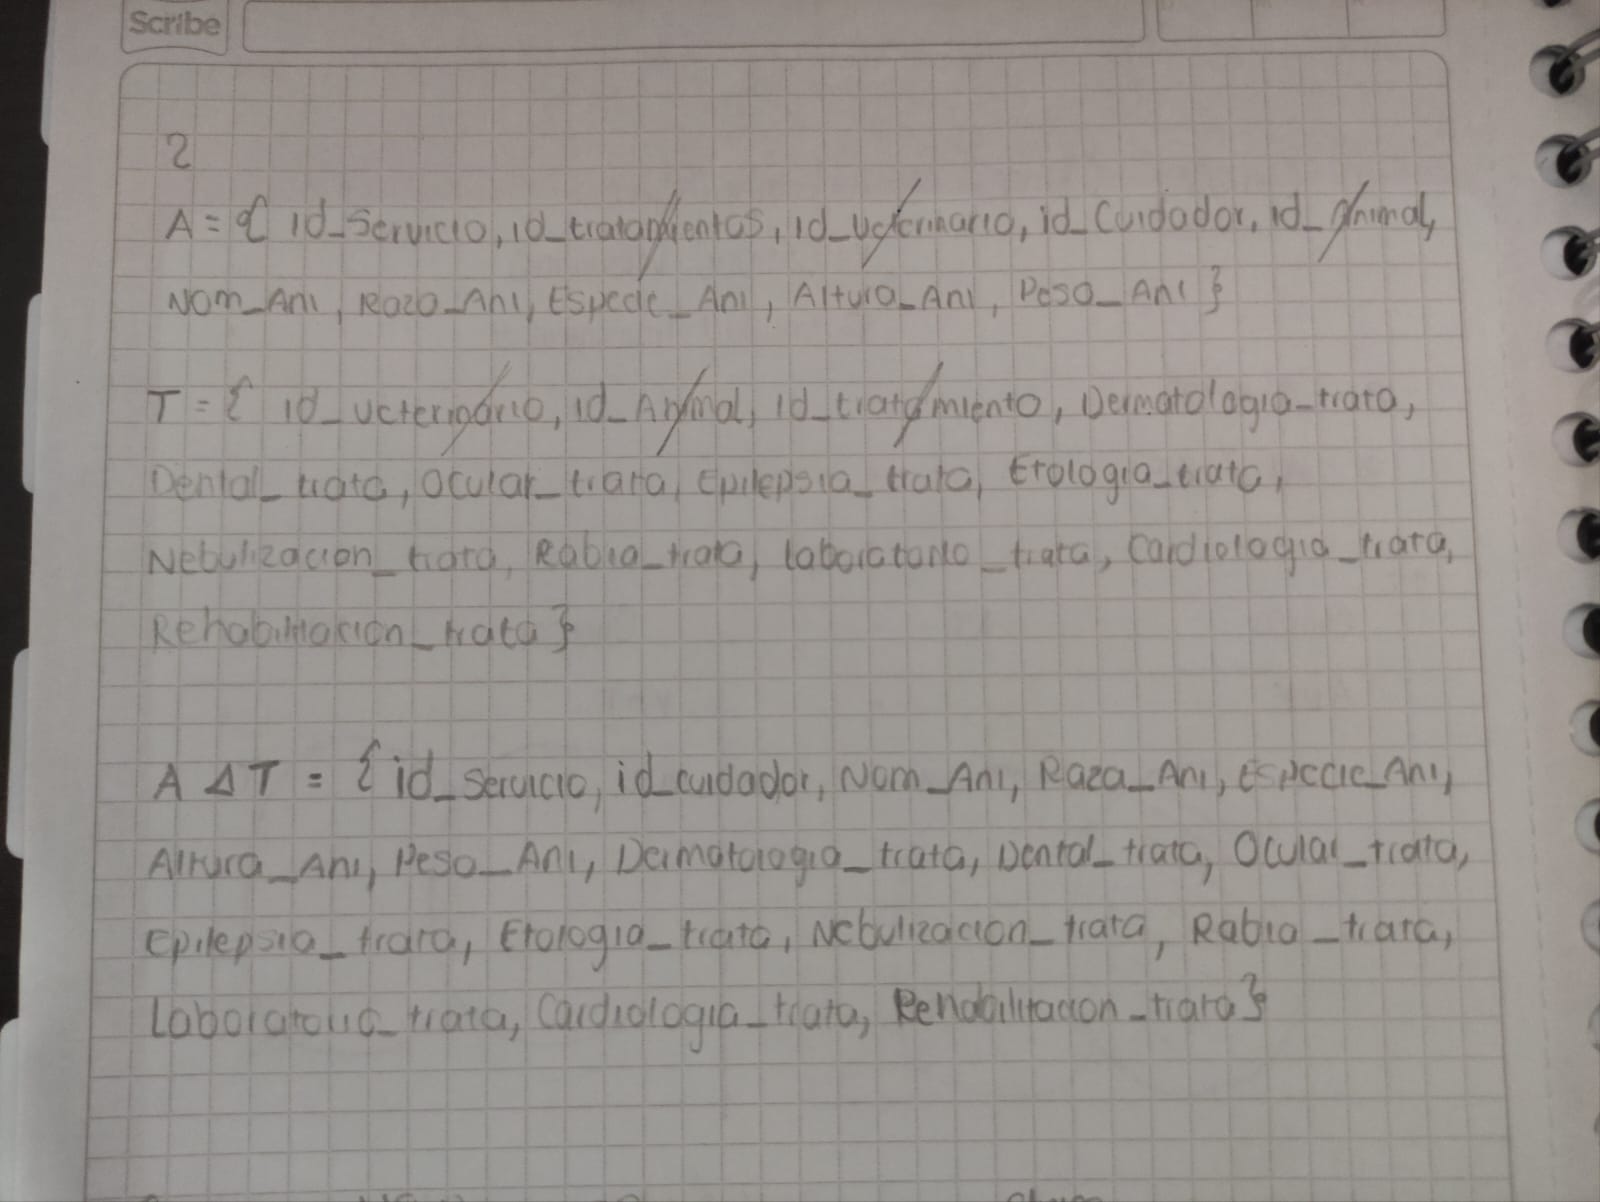 Scribe
2
A = { id_Servicio, id_tratamientos, id_veterinario, id_Cuidador, id_Animal,
Nom_Ani, Raza_Ani, Especie_Ani, Altura_Ani, Peso_Ani }
T = { id_veterinario, id_Animal, id_tratamiento, Dermatologia_trata,
Dental_trata, Ocular_trata, Epilepsia_trata, Etologia_trata,
Nebulizacion_trata, Rabia_trata, laboratorio_trata, Cardiologia_trata,
Rehabilitacion_trata }
A Δ T = { id_servicio, id_cuidador, Nom_Ani, Raza_Ani, Especie_Ani,
Altura_Ani, Peso_Ani, Dermatologia_trata, Dental_trata, Ocular_trata,
Epilepsia_trata, Etologia_trata, Nebulizacion_trata, Rabia_trata,
Laboratorio_trata, Cardiologia_trata, Rehabilitacion_trata }